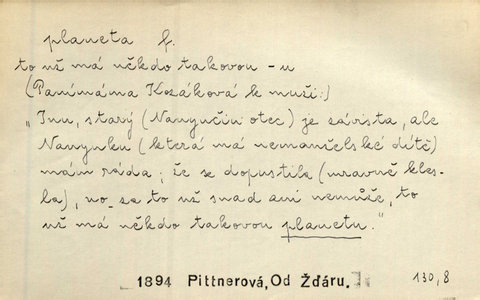 planeta f.
to už má někdo takovou -u
(Panímáma Kozáková k muži:)
„Inu, starý (Nanynčin otec) je závista, ale
Nanynku (která má nemanželské dítě)
mám ráda; že se dopustila (mravně kles-
la), no_za to už snad ani nemůže, to
už má někdo takovou planetu."
1894 Pittnerová, Od Žďáru.
130, 8